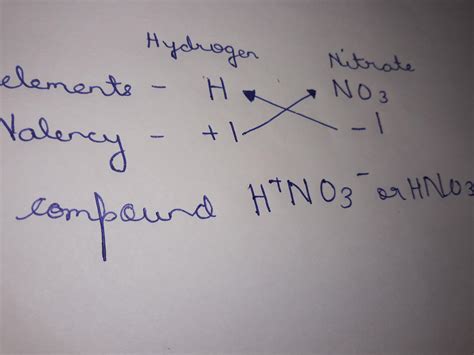 Hydrogen Nitrate
elements - H NO3
Valency - +1 -1
compound H+NO3- or HNO3